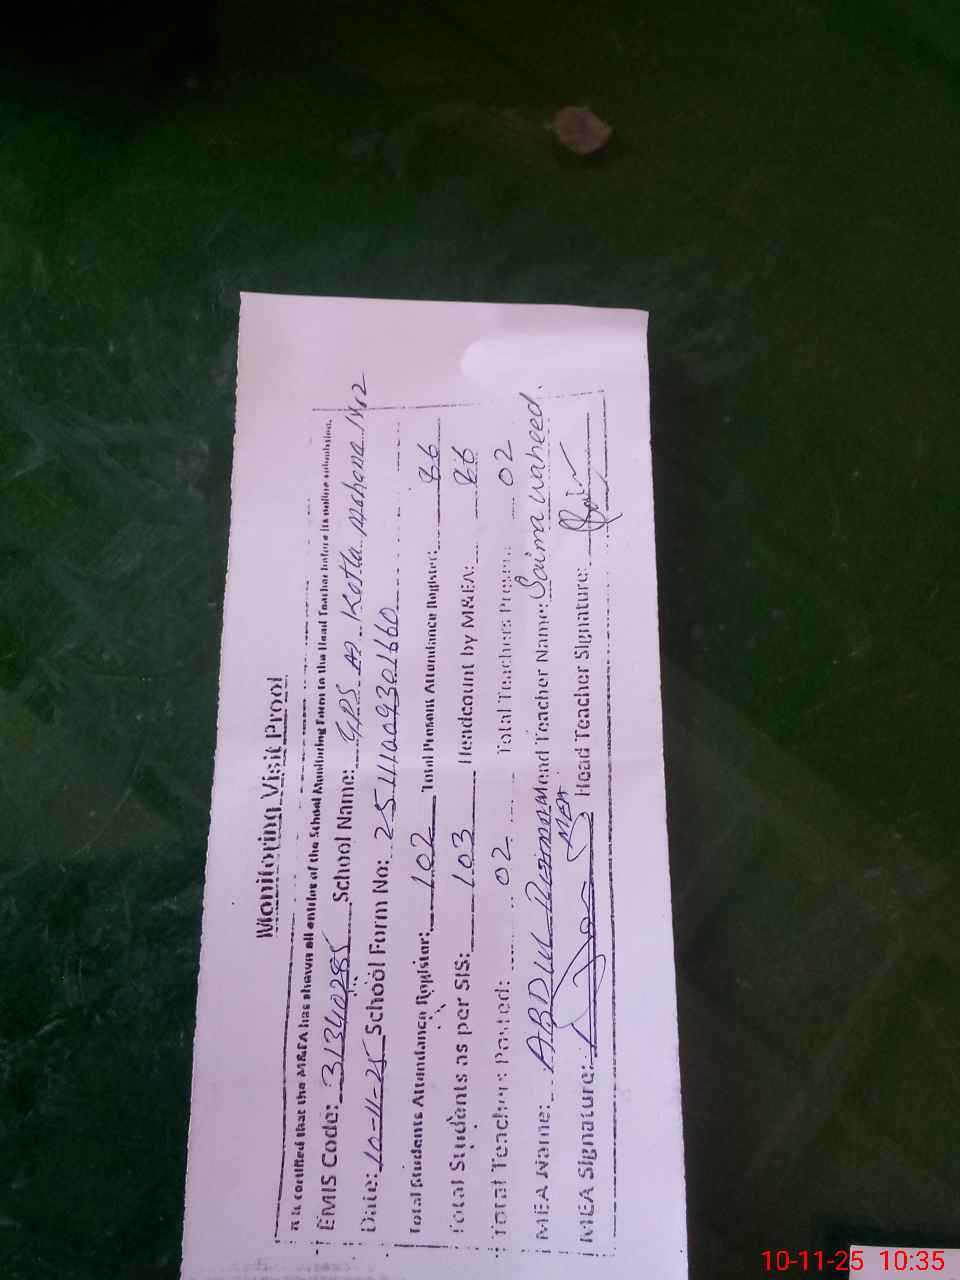 Monitoring Visit Proof
It is certified that the M&EA has shown all entries of the School Monitoring Form to the Head Teacher before its online submission.
EMIS Code: 31340285 School Name: GPS Kotla Mahana No2
Date: 10-11-25 School Form No: 25111009301660
Total Students Attendance Register: 102 Total Present Attendance Register: 86
Total Students as per SIS: 103 Headcount by M&EA: 86
Total Teachers Posted: 02 Total Teachers Present: 02
MEA Name: ABDUL Head Teacher Name: Saima Waheed
MEA Signature: MEA Head Teacher Signature:
10-11-25 10:35